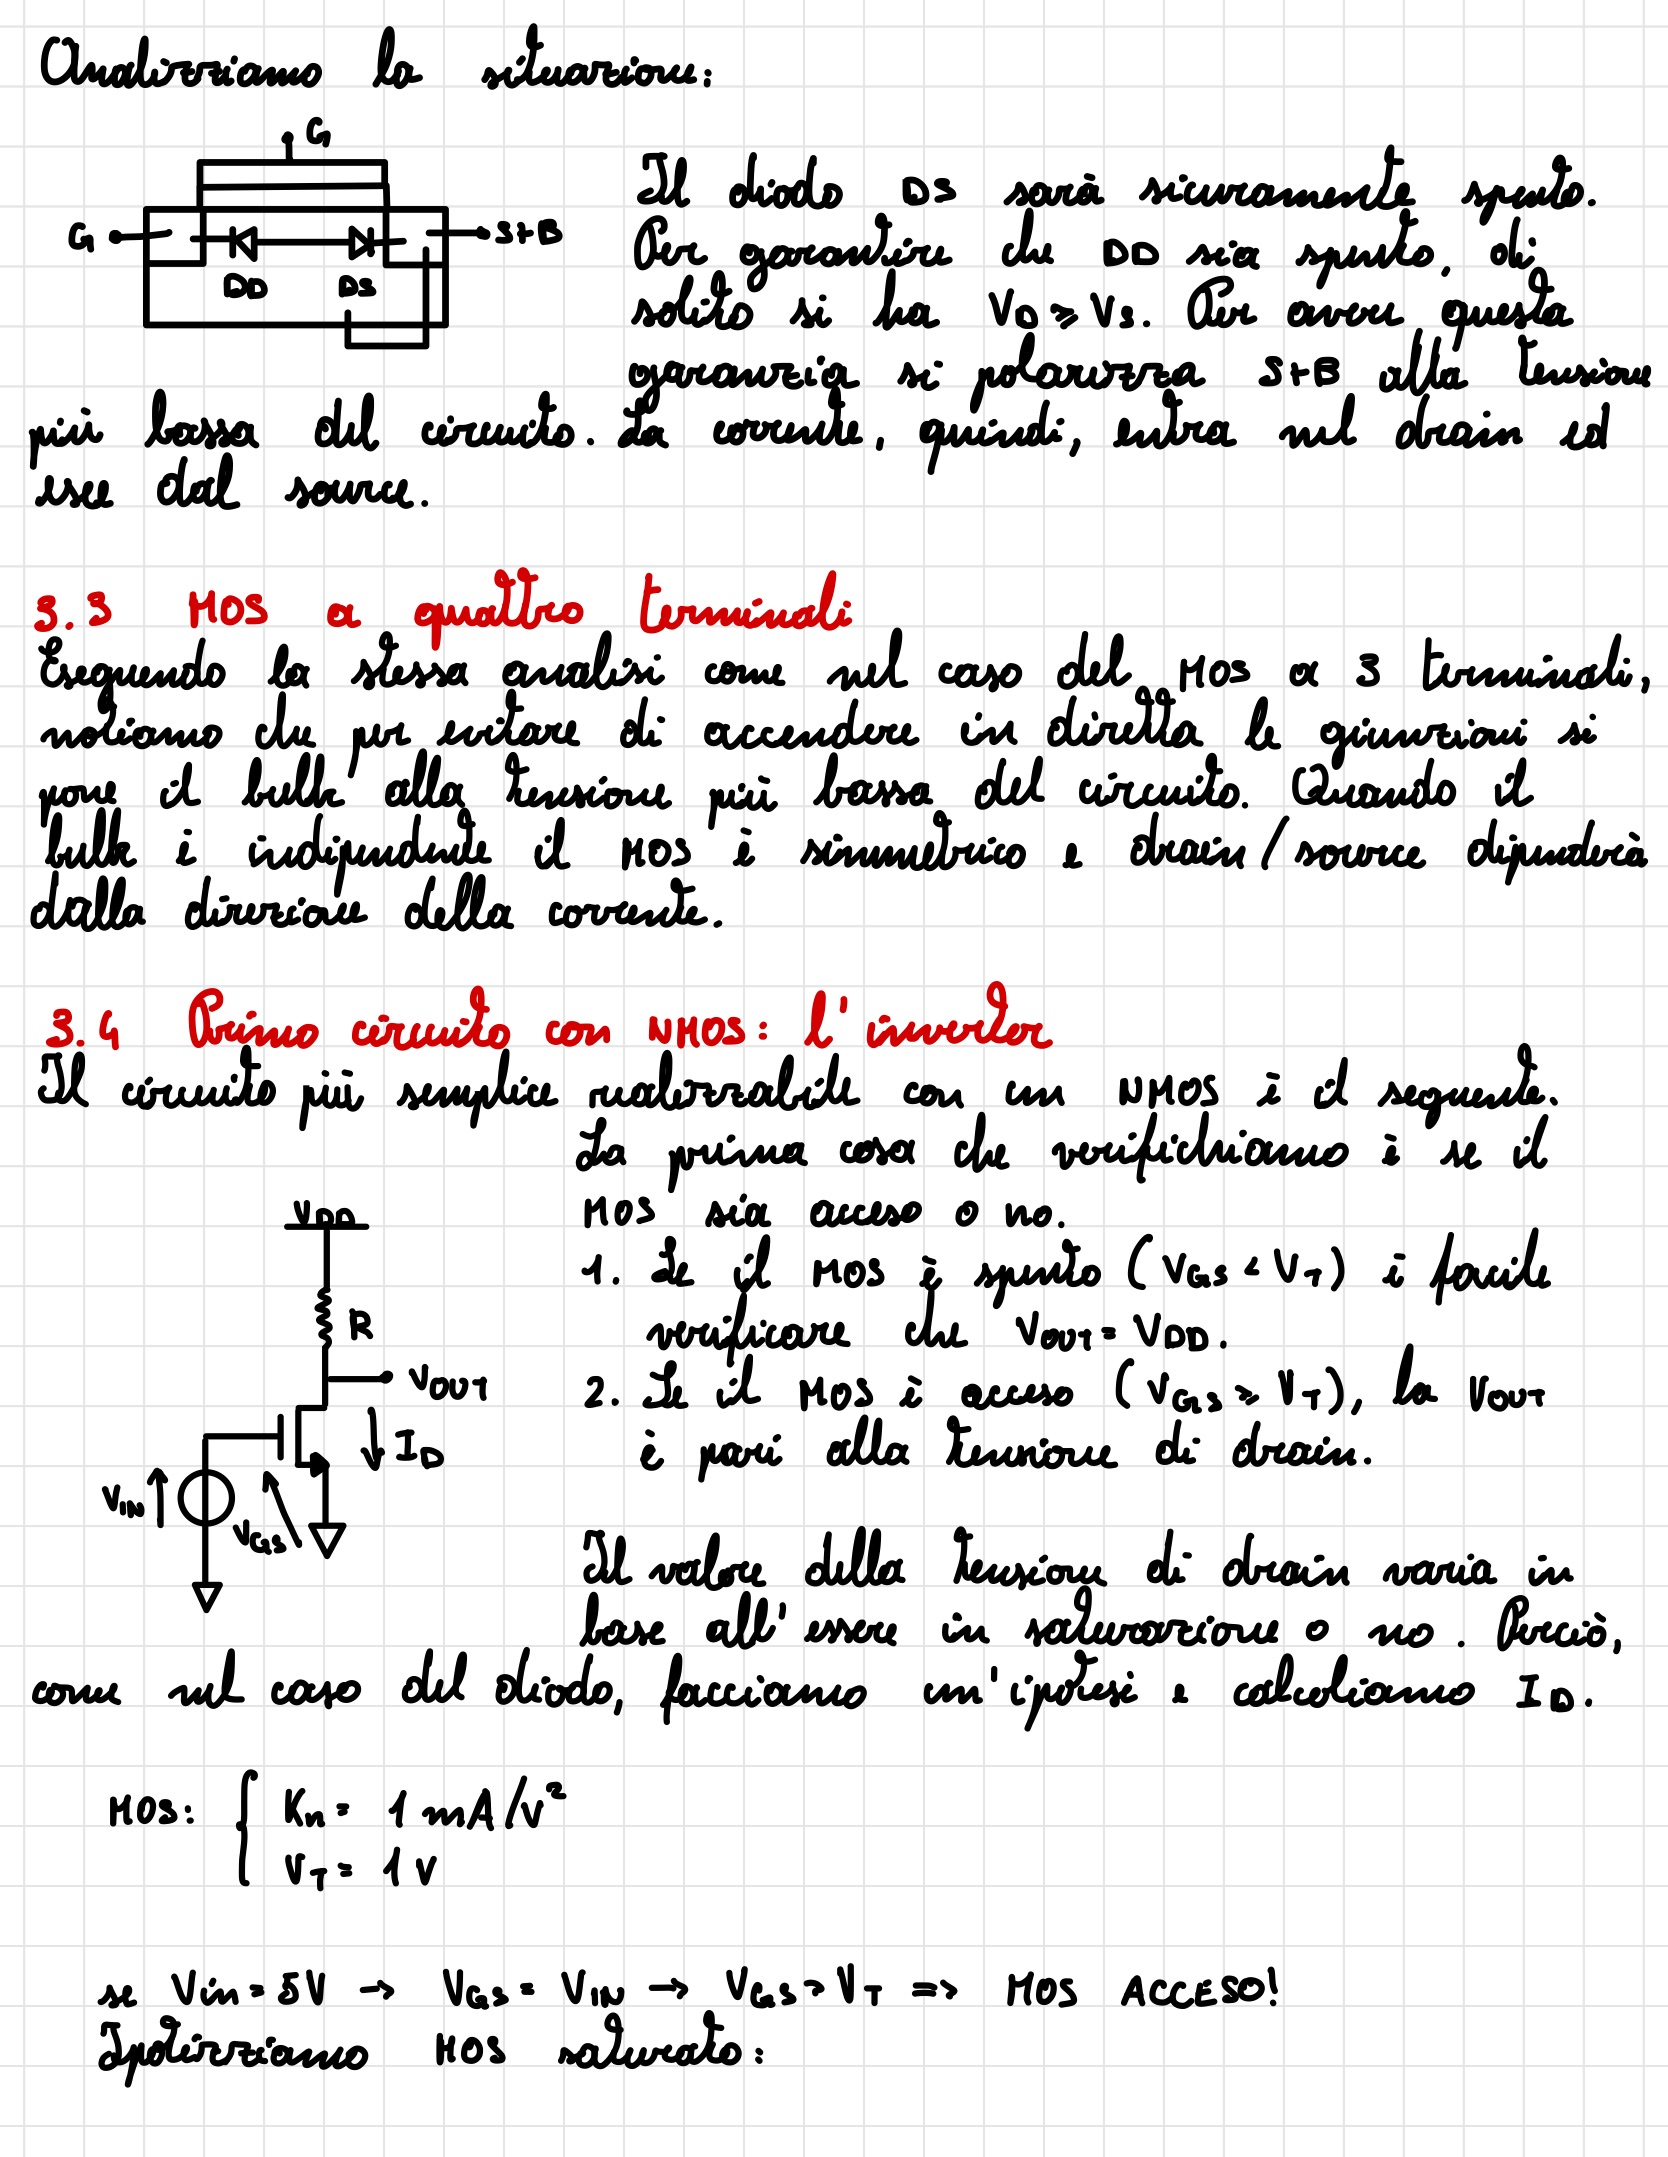 Analizziamo la situazione:
G
G
S+B
DD
DS
Il diodo DS sarà sicuramente spento.
Per garantire che DD sia spento, di
solito si ha VD ≥ VS. Per avere questa
garanzia si polarizza S+B alla tensione
più bassa del circuito. La corrente, quindi, entra nel drain ed
esce dal source.
3.3 MOS a quattro terminali
Eseguendo la stessa analisi come nel caso del MOS a 3 terminali,
notiamo che per evitare di accendere in diretta le giunzioni si
pone il bulk alla tensione più bassa del circuito. Quando il
bulk è indipendente il MOS è simmetrico e drain/source dipenderà
dalla direzione della corrente.
3.4 Primo circuito con NMOS: l'inverter
Il circuito più semplice realizzabile con un NMOS è il seguente.
La prima cosa che verifichiamo è se il
MOS sia acceso o no.
1. Se il MOS è spento (VGS < VT) è facile
verificare che VOUT = VDD.
2. Se il MOS è acceso (VGS ≥ VT), la VOUT
è pari alla tensione di drain.
VDD
R
VOUT
ID
VIN
VGS
Il valore della tensione di drain varia in
base all'essere in saturazione o no. Perciò,
come nel caso del diodo, facciamo un'ipotesi e calcoliamo ID.
MOS: { Kn = 1 mA/V²
VT = 1 V
se Vin = 5V → VGS = VIN → VGS > VT => MOS ACCESO!
Ipotizziamo MOS saturato: